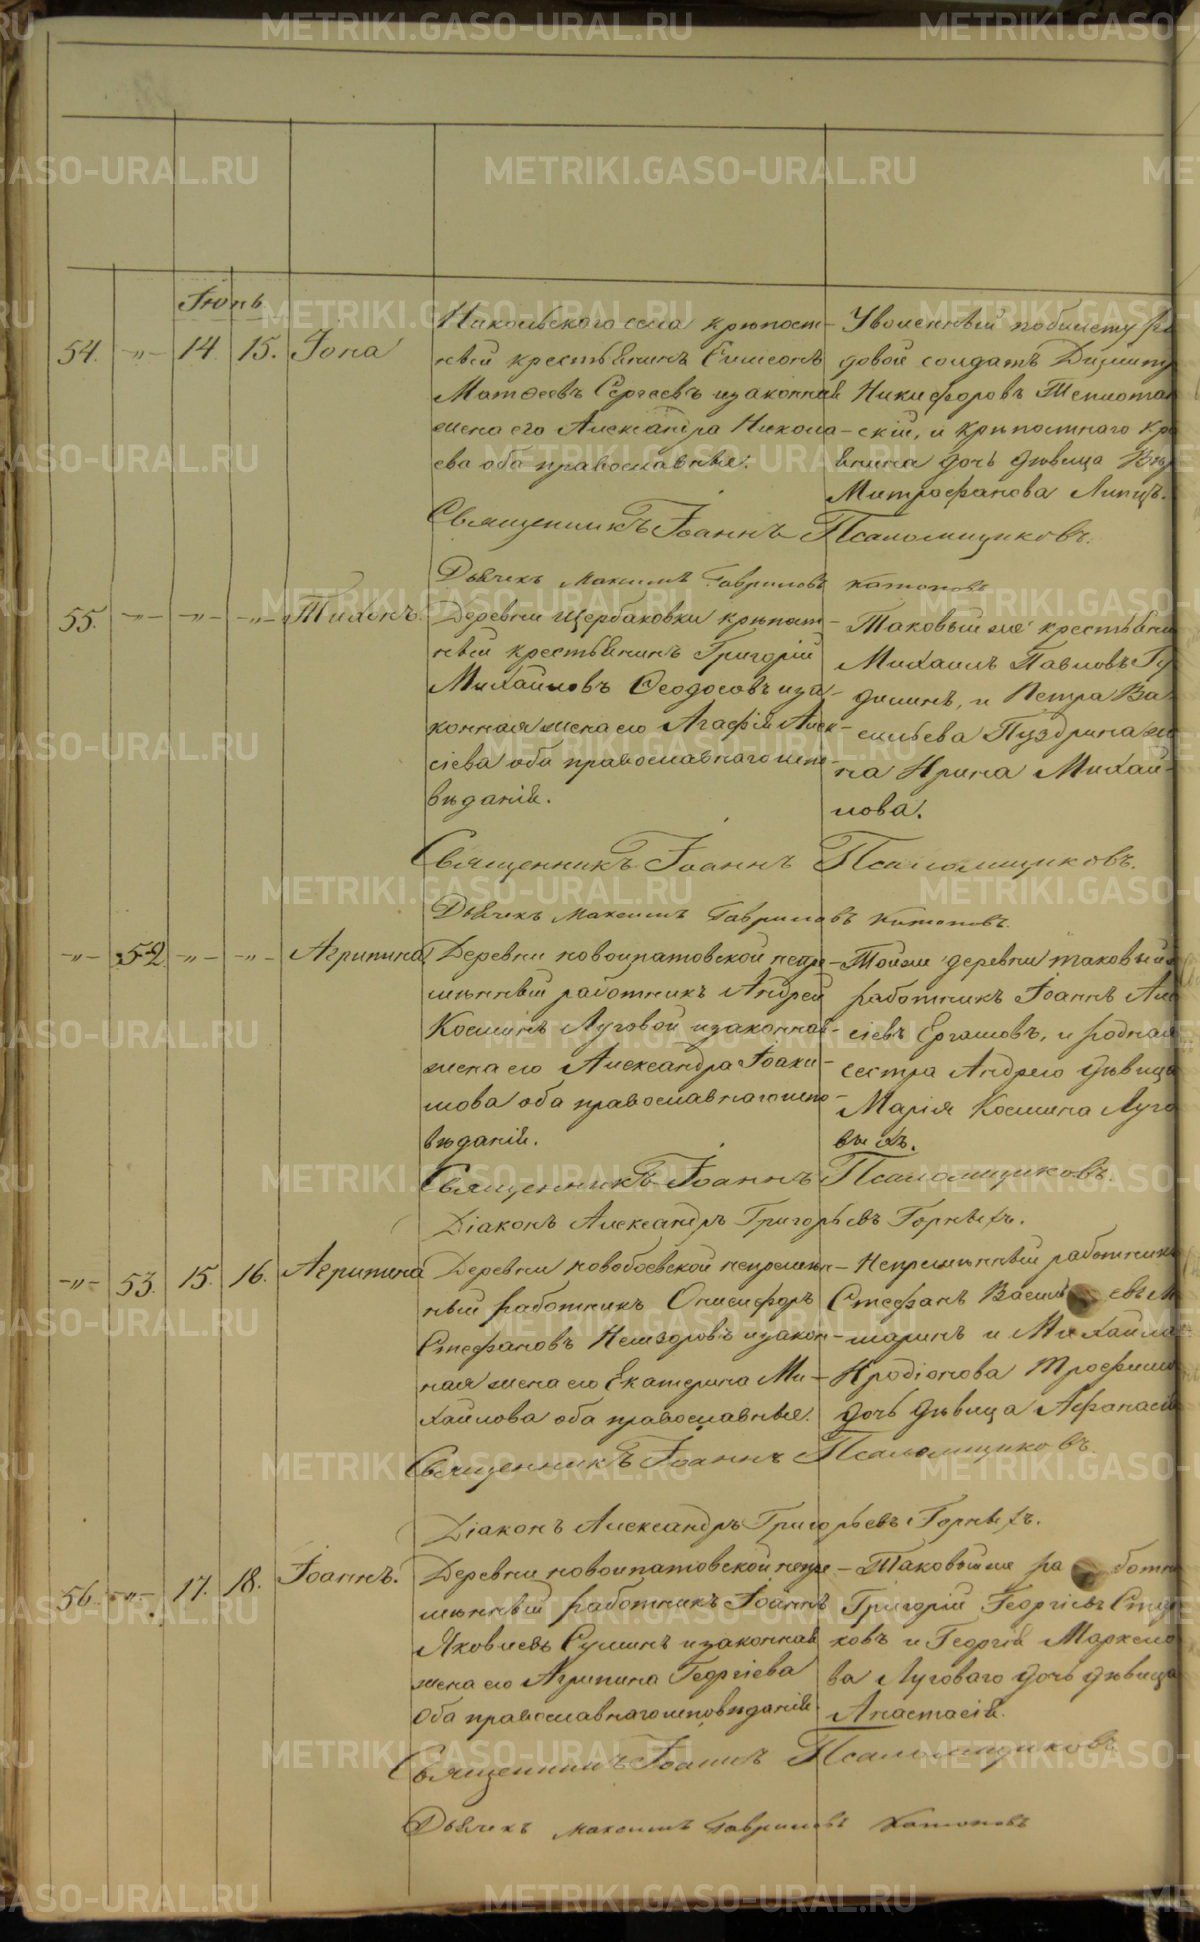 Іюнь
54. -"- 14. 15. Іона
Никольскаго села крѣпост-
ный крестьянинъ Симеонъ
Матѳеевъ Сергеевъ и законная
жена его Александра Никола-
ева оба православные.
Уволенный по билету ря
довой солдатъ Димитр
Никифоровъ
скій, и крѣпостнаго кре
янина дочь дѣвица
Митрофанова
Священникъ Іоаннъ Псаломщиковъ.
Дьячекъ Максимъ Гавриловъ Катоновъ
55. -"- -"- -"- Тихонъ.
Деревни Щербаковки крѣпост-
ный крестьянинъ Григорій
Михайловъ Ѳеодосовъ и за-
конная жена его Агафія Алек-
сіева оба православнаго испо-
вѣданія.
Таковый же крестьяни
Михаилъ Павловъ
и Петра Ва-
сильева Пуздрина же
на Ирина Михай-
лова.
Священникъ Іоаннъ Псаломщиковъ.
Дьячекъ Максимъ Гавриловъ Катоновъ.
-"- 52. -"- -"- Агрипина
Деревни новоипатовской непре-
мѣнный работникъ Андрей
Косминъ Луговой и законная
жена его Александра Іоаки-
мова оба православнаго испо-
вѣданія.
Тойже деревни таковый
работникъ Іоаннъ Але
сіевъ Ергашовъ, и родная
сестра Андрею дѣвица
Марія Космина Луго
выхъ.
Священникъ Іоаннъ Псаломщиковъ.
Діаконъ Александръ Григорьевъ Горныхъ.
-"- 53. 15. 16. Агрипина
Деревни новобоевской непремѣн-
ный работникъ Онисифоръ
Стефановъ и закон-
ная жена его Екатерина Ми-
хаилова оба православные.
Непремѣнный работникъ
Стефанъ Василь евъ
и Михаила
Иродіонова Трофимо
дочь дѣвица Афанасія
Священникъ Іоаннъ Псаломщиковъ.
Діаконъ Александръ Григорьевъ Горныхъ.
56. -"- 17. 18. Іоаннъ.
Деревни новоипатовской непре-
мѣнный работникъ Іоаннъ
Яковлевъ Суминъ и законная
жена его Агрипина Георгіева
Оба православнаго исповѣданія.
Таковый же ра ботни
Григорій Георгіевъ
ковъ и Георгія Маркело
ва Луговаго дочь дѣвица
Анастасія.
Священникъ Іоаннъ Псаломщиковъ.
Дьячекъ Максимъ Гавриловъ Катоновъ
METRIKI.GASO-URAL.RU